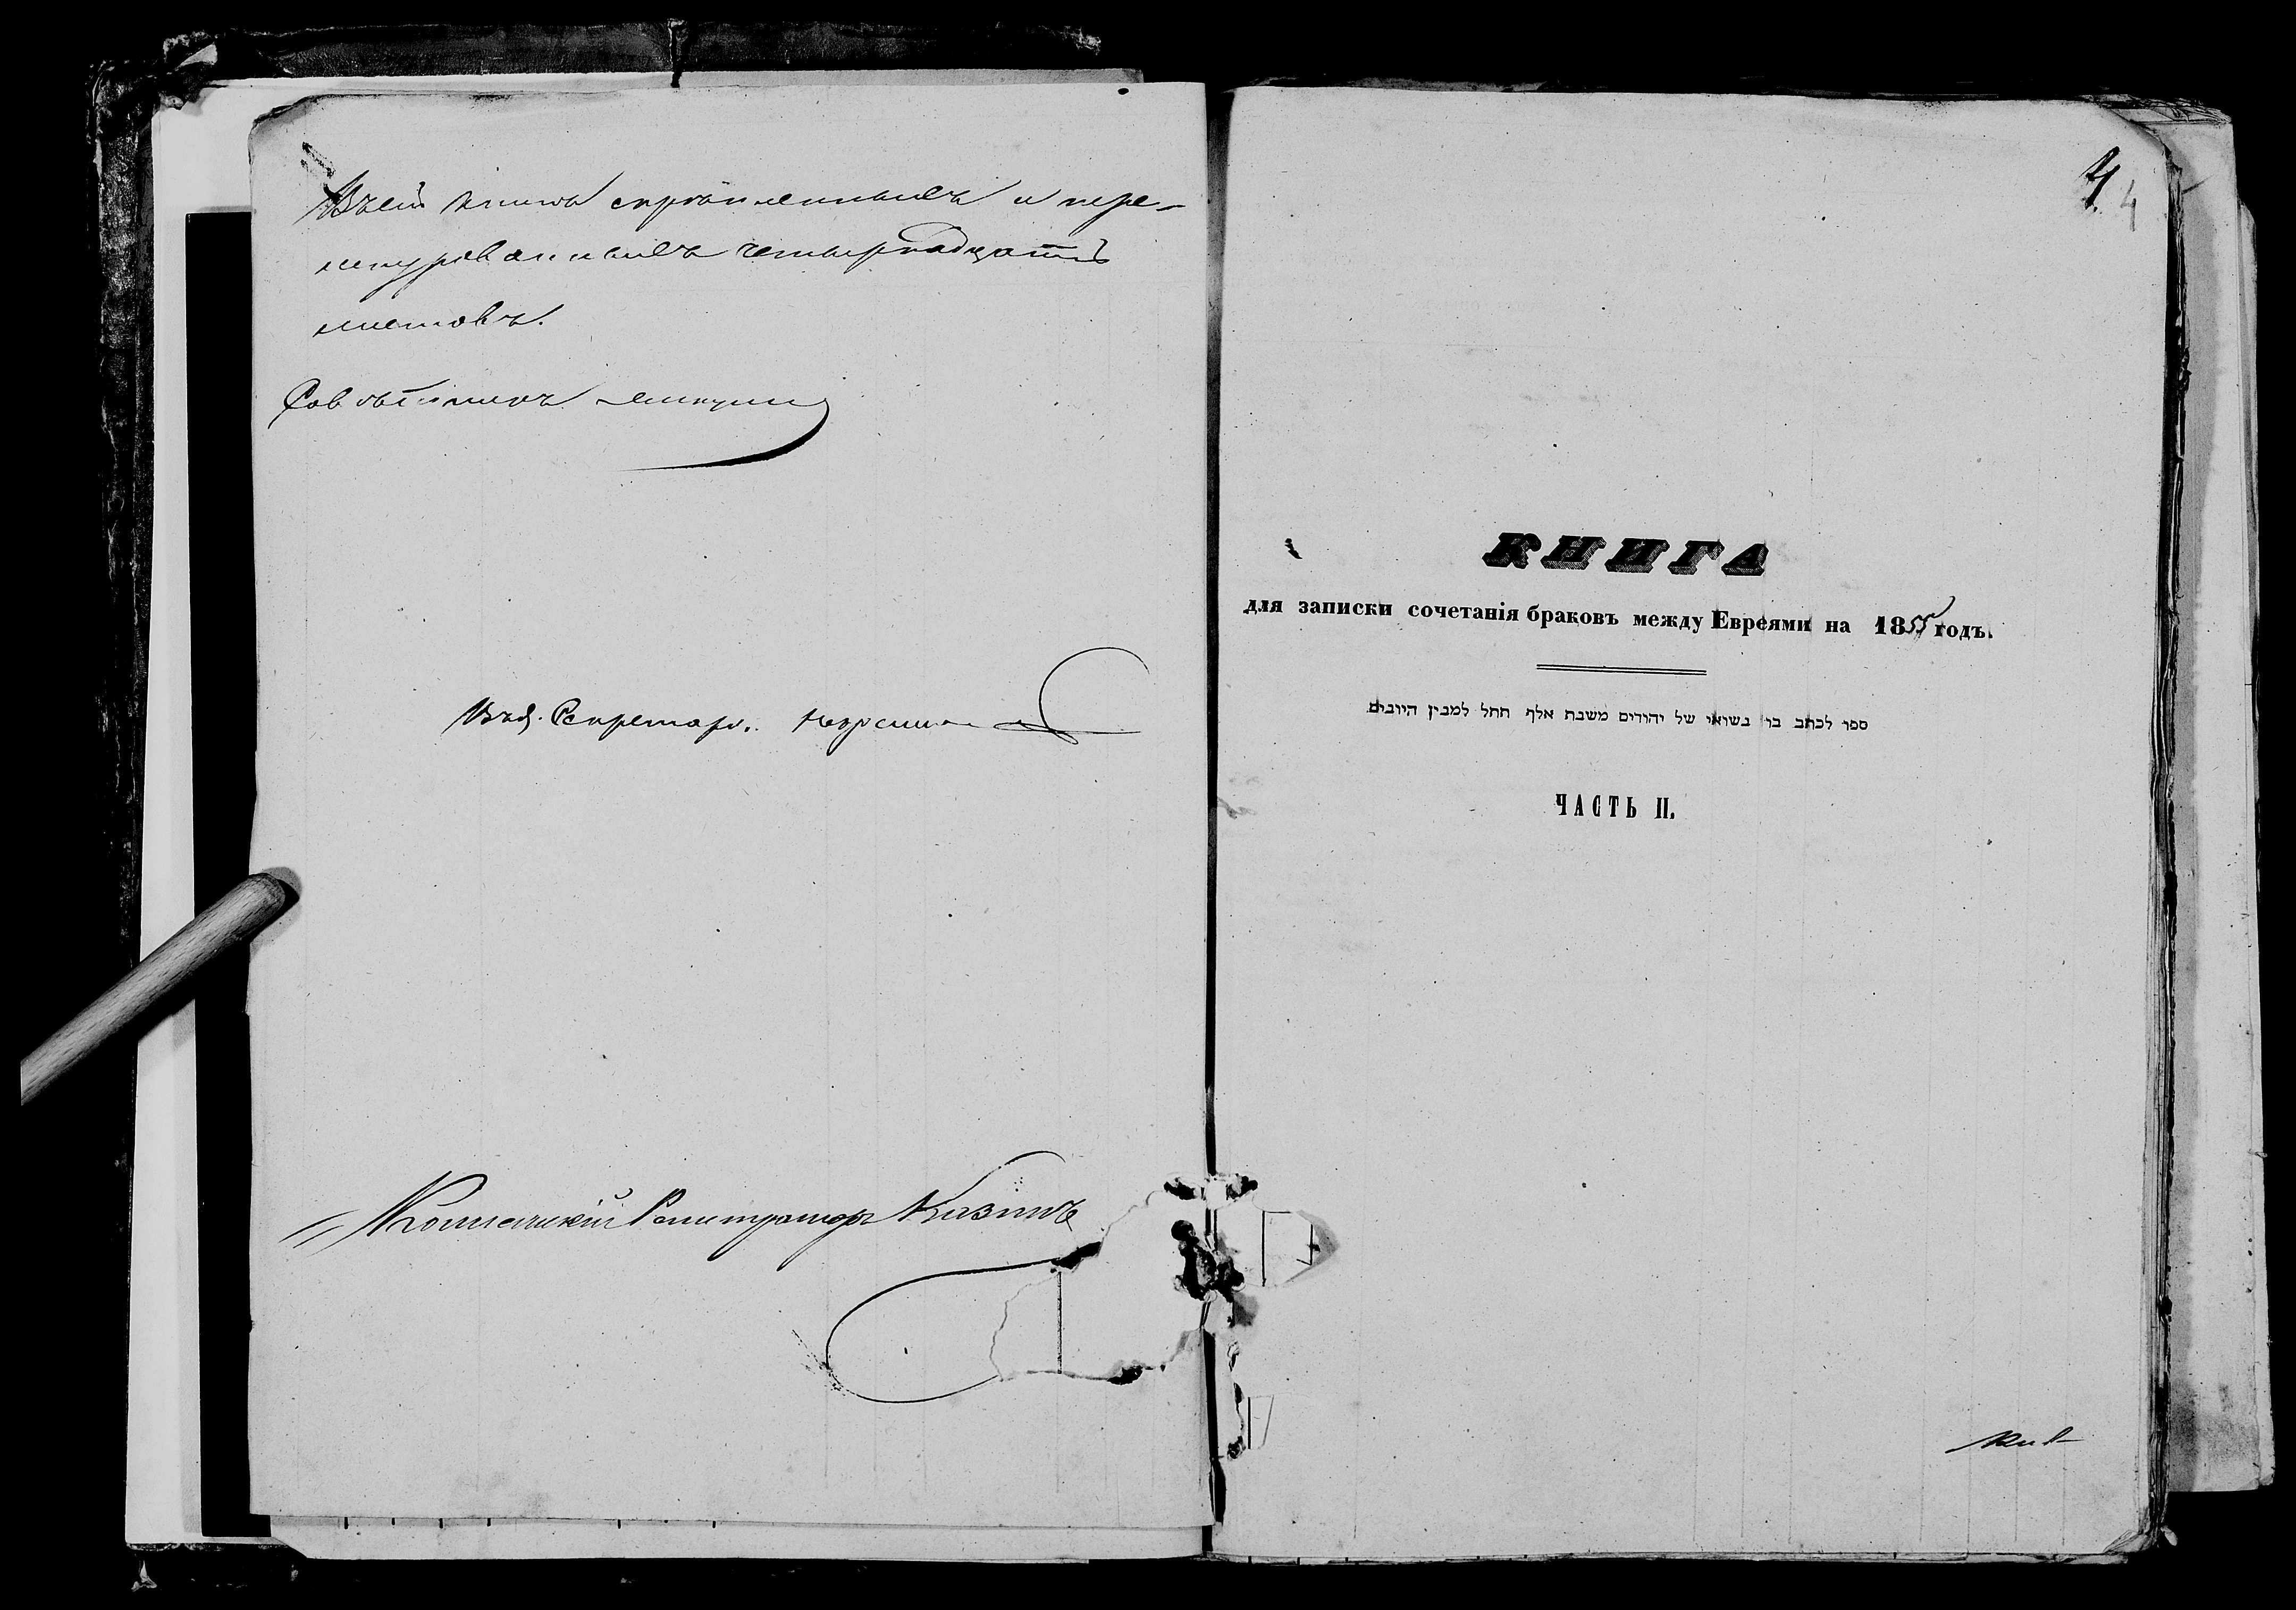 Въ сей книгѣ скрѣпленныхъ и пере-
нумерованныхъ четырнадцать
листовъ.
Совѣтникъ
Секретарь
Коллежскій Регистраторъ
4 4
КНИГА
для записки сочетанія браковъ между Евреями на 1855 годъ.
ספר לכתב בו נשואי של יהודים משנת אלף תתל למנין היוונים
ЧАСТЬ II.